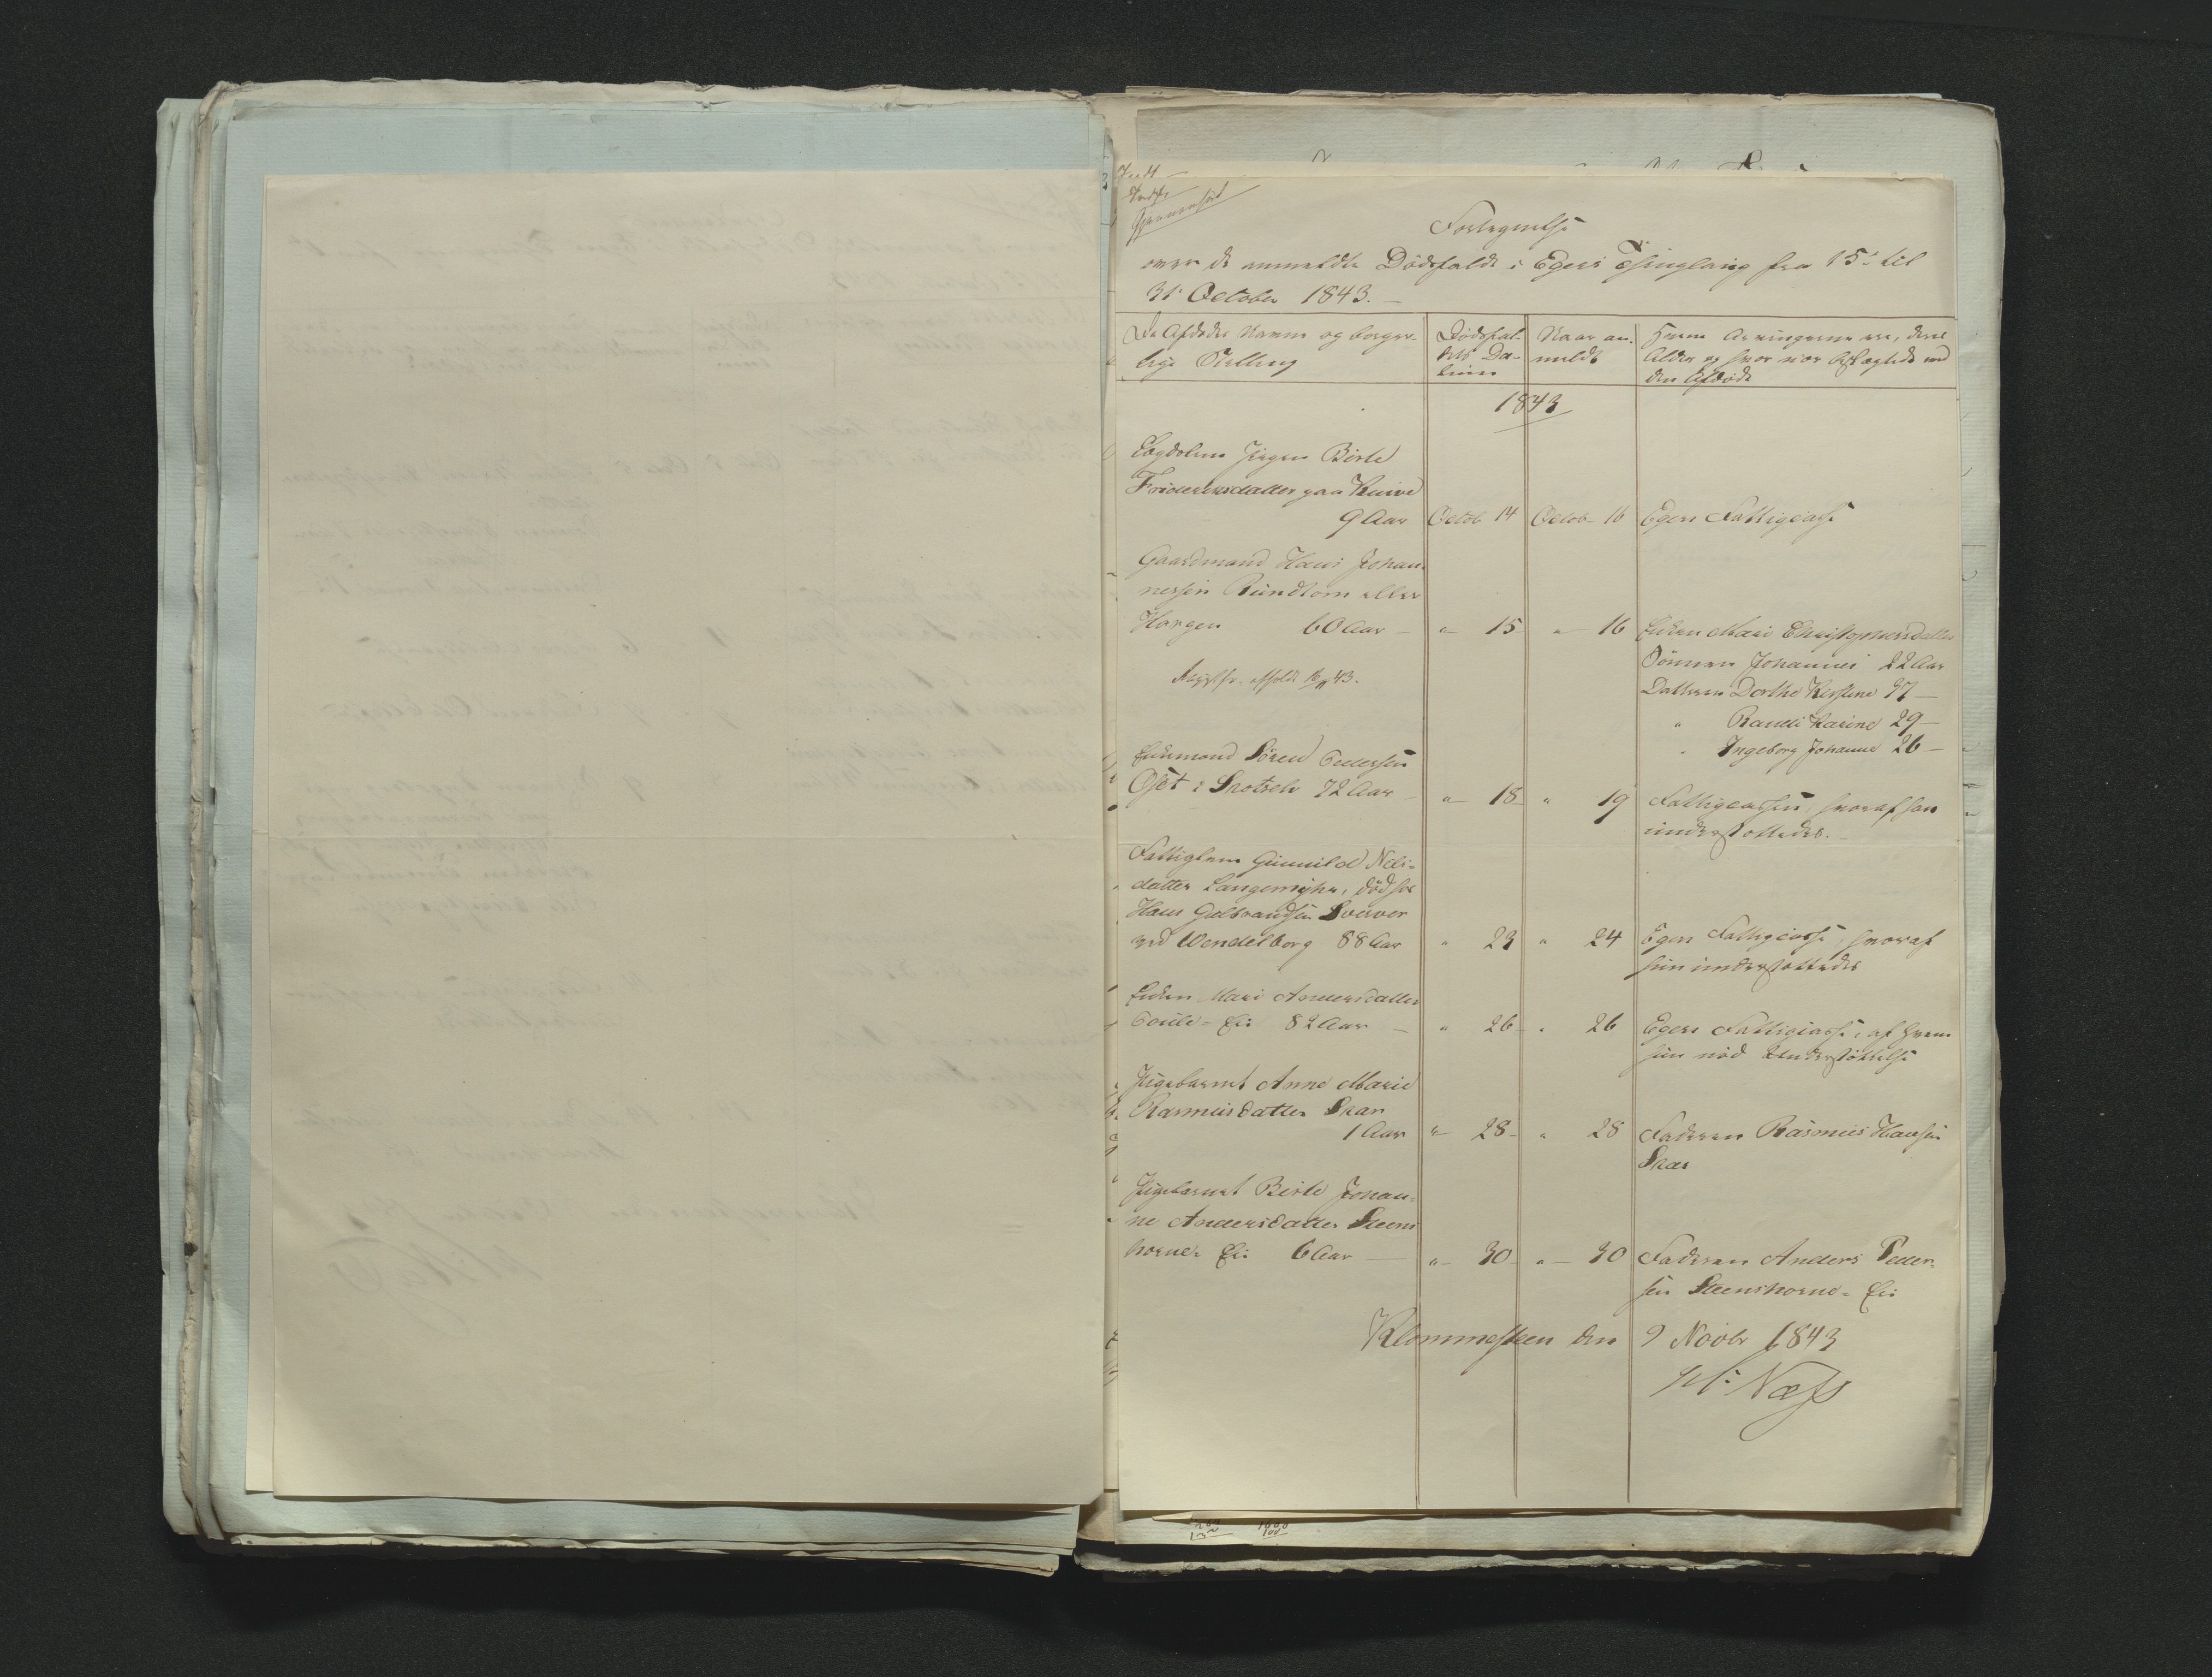 Fortegnelse
over de anmeldte Dödsfalde i Egers Thinglaug fra 15de til
31te October 1843.
De Afdödes Navne og borger-
lige Stilling
Dödsfal-
dets Da-
tum
Naar an-
meldt
Hvem Arvingerne ere, deres
Alder og hvor nær beslægtede med
den Afdöde
1843
Lægdslem Pigen Birte
Fredriksdatter paa Kuive
9 Aar Octob 14 Octob 16 Egers Fattigcasse
Gaardmand Hans Johan-
nessen Rundtom eller
Horgen 60 Aar - " 15 " 16 Enken Mari Christophersdatter
Sönnen Johannes 22 Aar
Datteren Dorthe Kirstine 37 -
Registr. afholdt 43.
" Randi Karine 29 -
" Ingeborg Johanne 26 -
Enkemand Sören Pedersen
Öset i Skotselv 72 Aar " 18 " 19 Fattigcassen, hvoraf han
understöttedes.
Fattiglem Gunnild Nels-
datter Langemyhr, död hos
Hans Gulbrandsen Sverver
ved Vendelborg 88 Aar " 23 " 24 Egers Fattigcasse, hvoraf
hun understöttedes
Enken Mari Andersdatter
Eie 82 Aar - " 26 " 26 Egers Fattigcasse, af hvem
hun nöd Understöttelse
Pigebarnet Anne Marie
Rasmusdatter Skar
1 Aar " 28 - " 28 Faderen Rasmus Hansen
Skar
Pigebarnet Birte Johan-
ne Andersdatter Steens-
horne- Eie 6 Aar - " 30 - " 30 Faderen Anders Peder-
sen Steenshorne- Eie
Klommesteen den 9 Novbr 1843
Næss